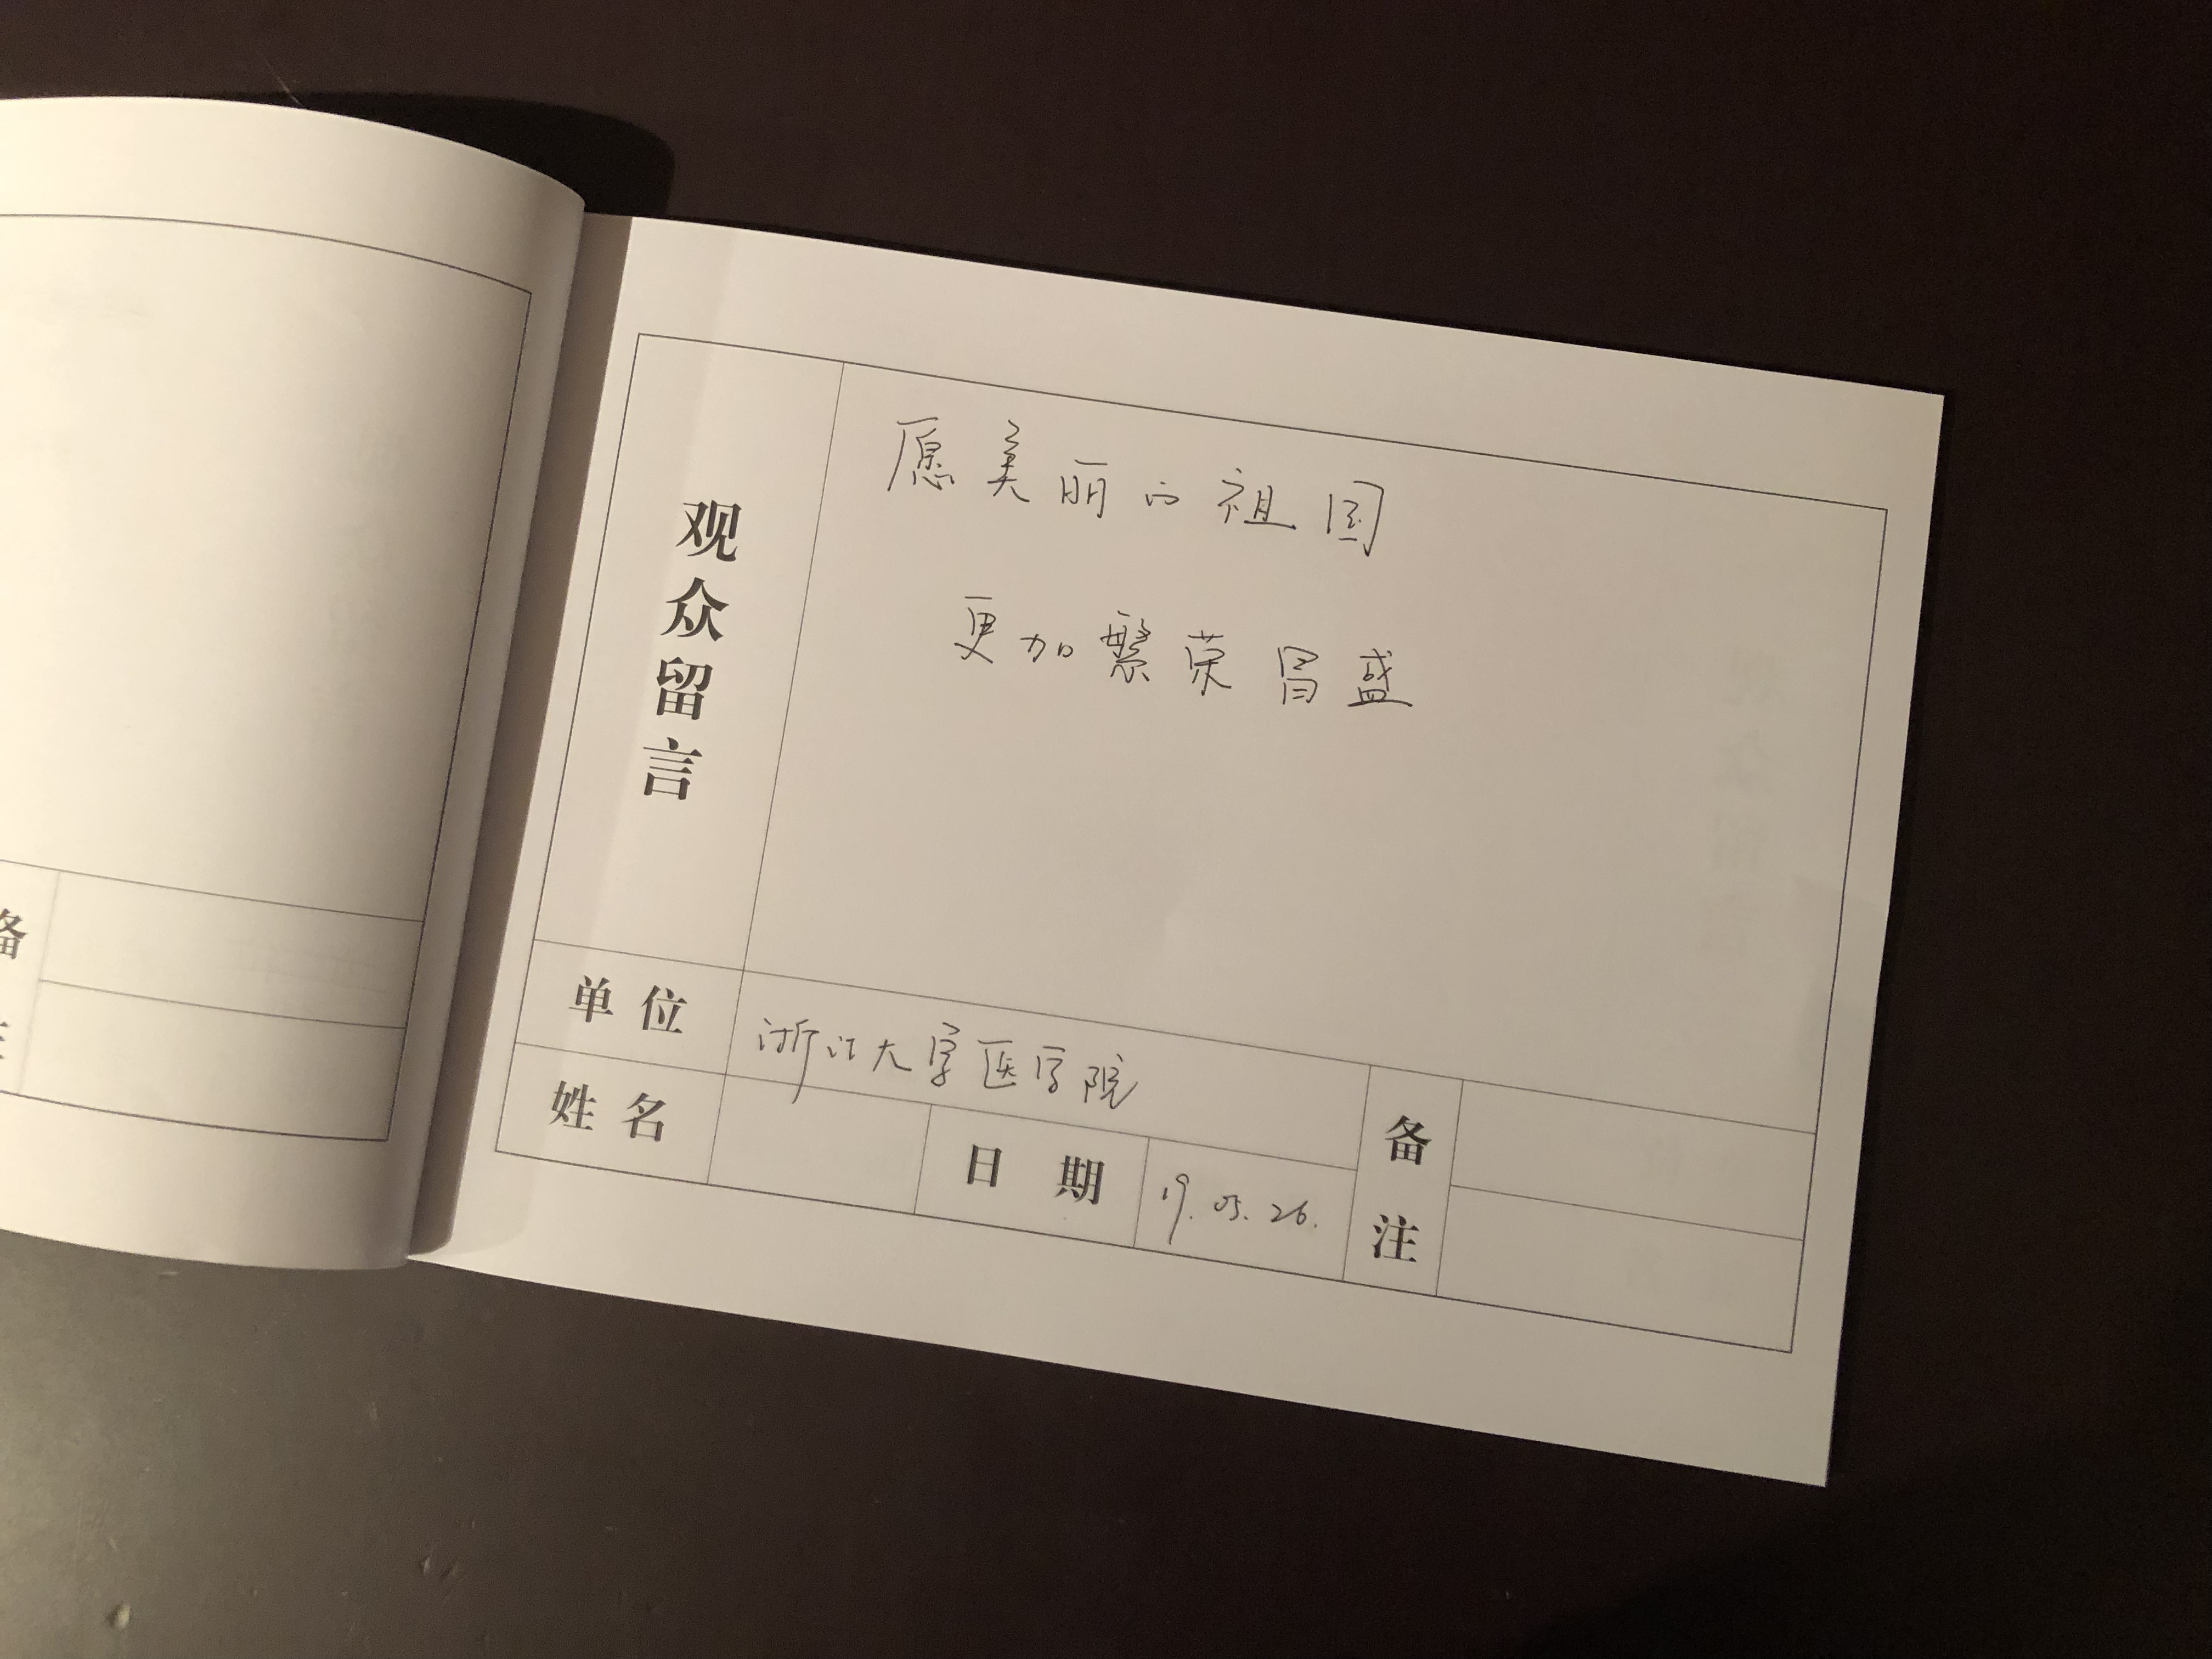 备
注
观众留言
愿美丽的祖国
更加繁荣昌盛
单位
浙江大学医学院
姓名
日期
19.05.26.
备注